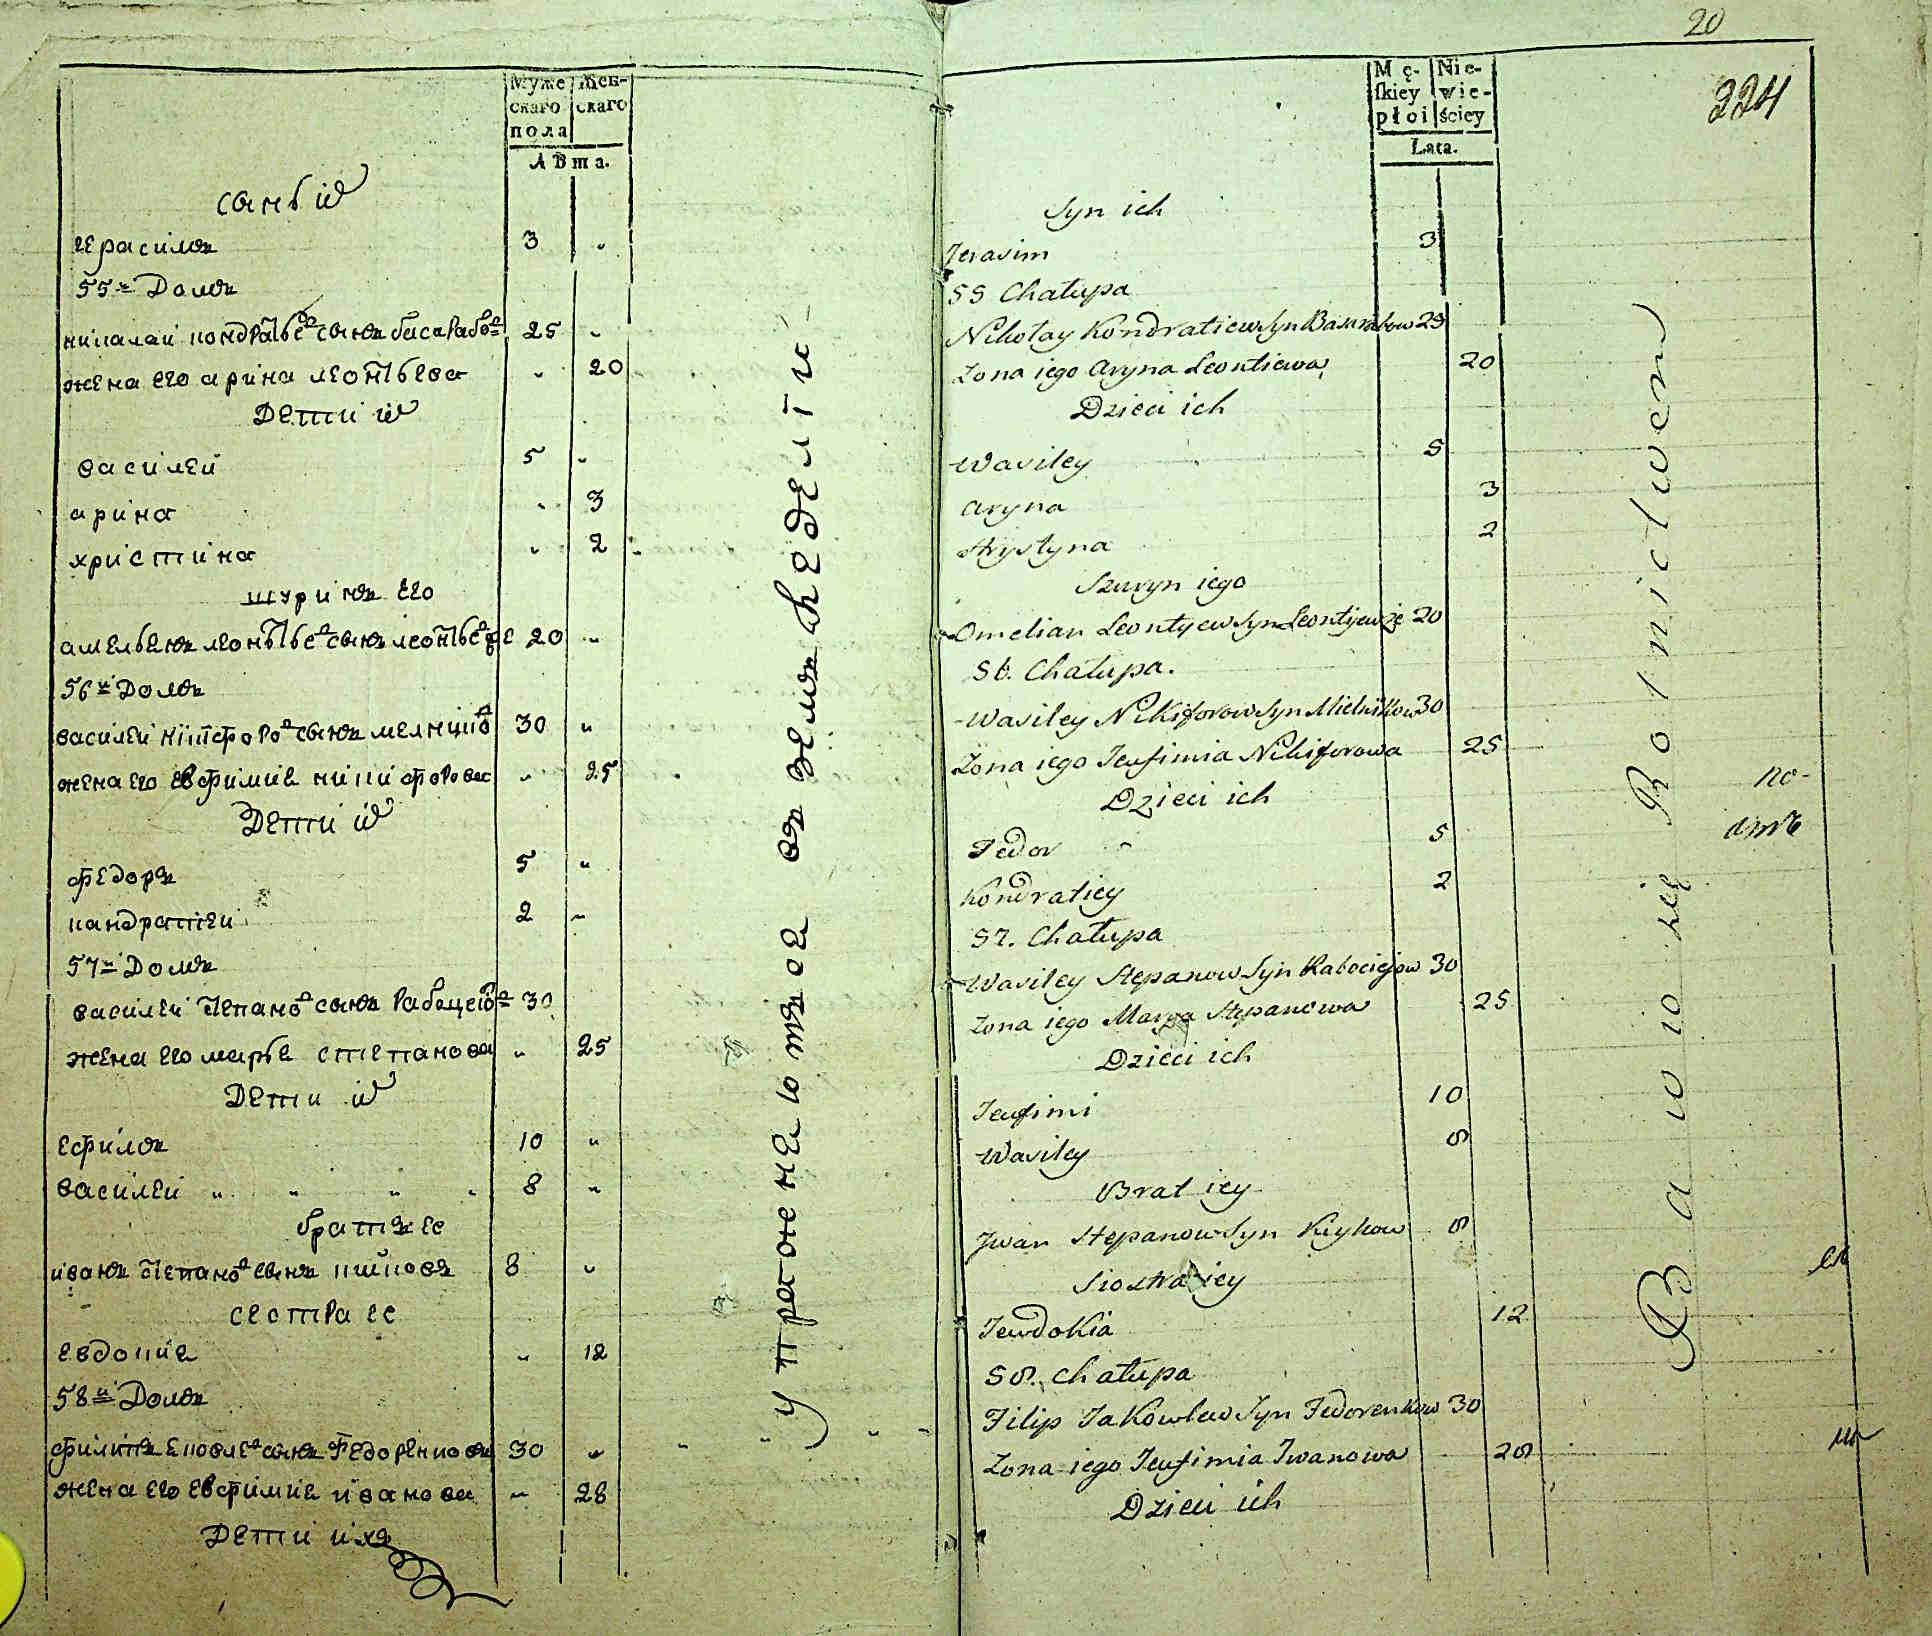 Муже Жен-
скаго скаго
пола
Лѣта.
сынъ ихъ
герасимъ 3 "
55й Домъ
николай кондратьевъ сынъ басарабовъ 25 "
жена его арина леонтьева " 20
Дети ихъ
василей 5 "
арина " 3
христина " 2
шуринъ его
амельенъ леонтьевъ сынъ леонтьевъ же 20 "
56й Домъ
василей никифоровъ сынъ мелниковъ 30 "
жена его евфимиа никифорова " 25
Дети ихъ
федоръ 5 "
кандратеи 2 "
57й Домъ
василеи степановъ сынъ рабецеювъ 30
жена его марья степанова " 25
Дети ихъ
ефимъ 10 "
василеи " " " " 8 "
братъ ее
иванъ степановъ сынъ кийковъ 8 "
сестра ее
евдокиа " 12
58й Домъ
филипъ яковлевъ сынъ Федоренковъ 30 "
жена его евфимиа иванова " 28
Дети ихъ
упражнеются въ земледелiи
20
224
Mę- Nie-
ſkiey wie-
płci ściey
Lata.
Syn ich
Jerasim 3
55 Chałupa
Nikołay Kondratiew Syn Basarabow 25
Zona iego Aryna Leontiewa 20
Dzieci ich
Wasiley 5
Aryna 3
Hrystyna 2
Szuryn iego
Omelian Leontyew Syn Leontyew że 20
56. Chałupa.
Wasiley Nikiforow Syn Mielnikow 30
Zona iego Jeufimia Nikiforowa 25
Dzieci ich
Fedor 5
Kondratiey 2
57. Chałupa
Wasiley Stepanow Syn Rabociejow 30
Zona iego Marya Stepanowa 25
Dzieci ich
Jeufimi 10
Wasiley 8
Brat iey
Jwan Stepanow Syn Kiykow 8
Siostra iey
Jewdokia 12
58. Chałupa
Filip Jakowlew Syn Fedorenkow 30
Zona iego Jeufimia Jwanowa 28
Dzieci ich
Bawio się Rolnictwem